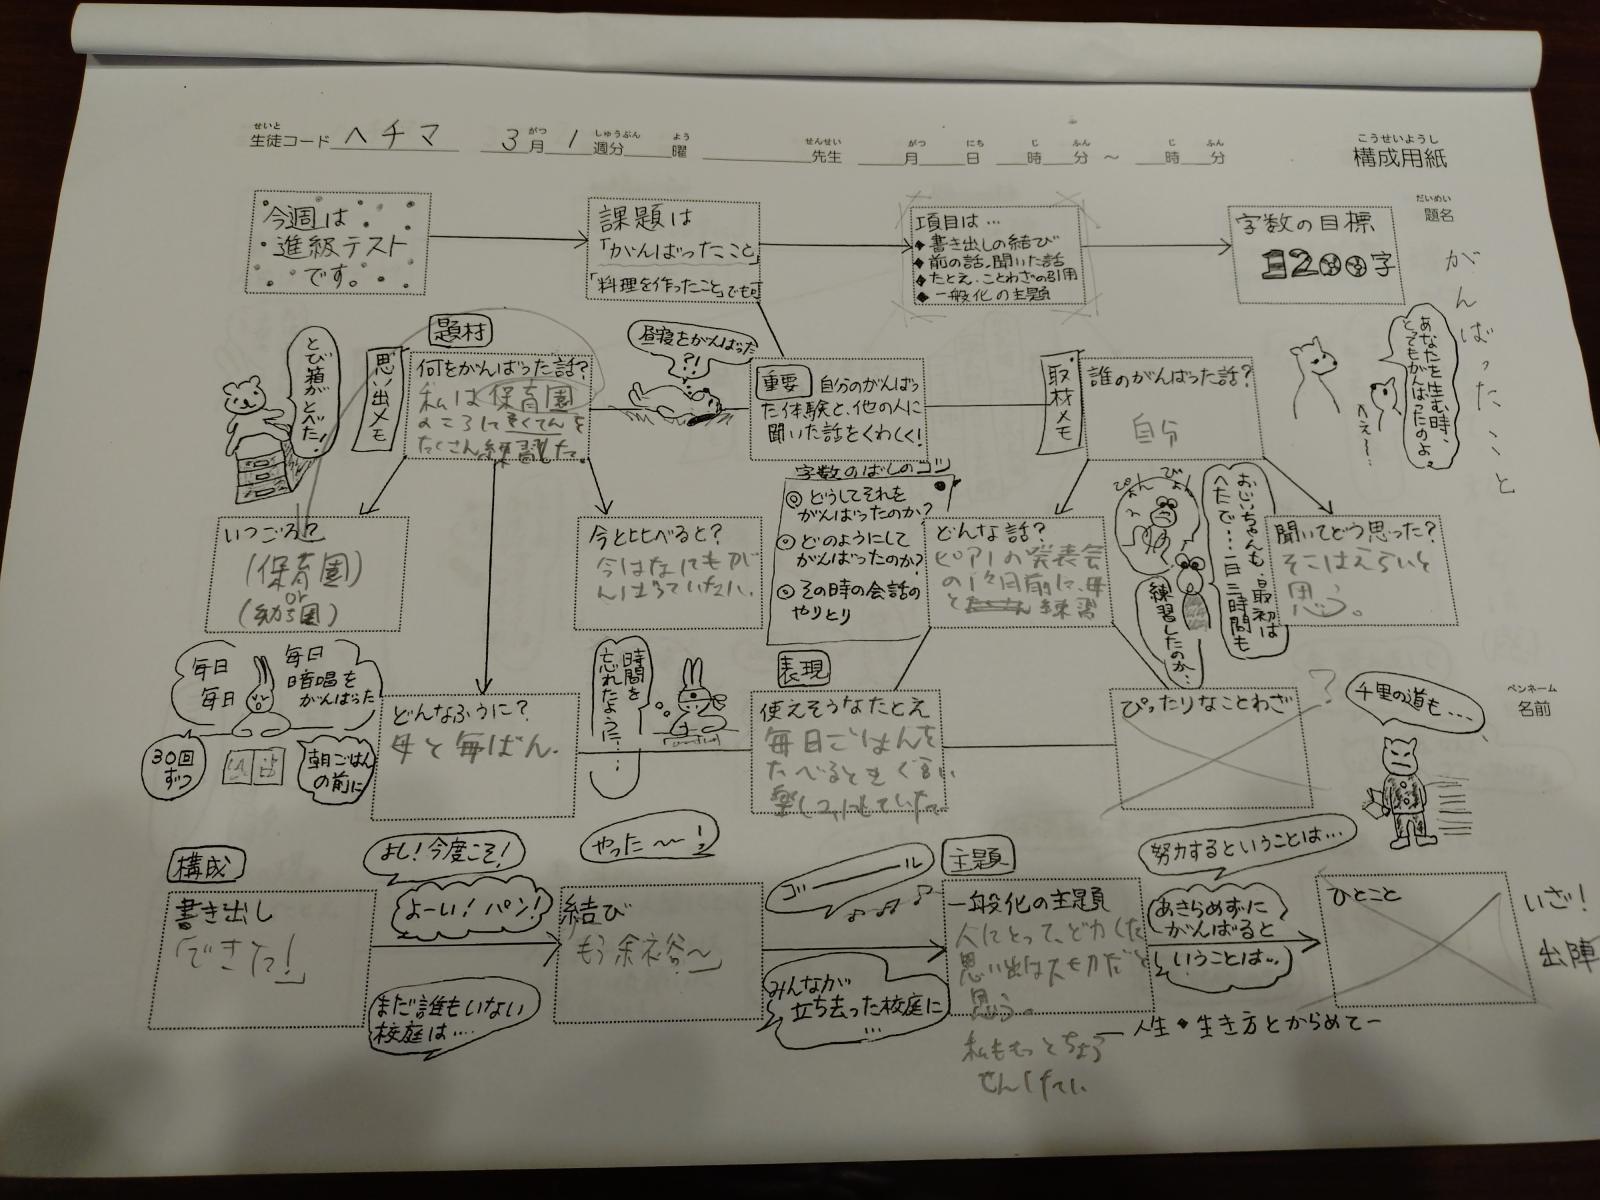 せいと
生徒コード ヘチマ 3月1週分 曜 先生 月 日 時 分～ 時 分
がつ しゅうぶん よう せんせい がつ にち じ ふん じ ふん
こうせいようし
構成用紙
今週は
進級テスト
です。
課題は
「がんばったこと」
「料理を作ったこと」でも可
項目は…
◆書き出しの結び
◆前の話、聞いた話
◆たとえ、ことわざの引用
◆一般化の主題
字数の目標
1200字
だいめい
題名
がんばったこと
とび箱がとべた!
思い出メモ
題材
何をがんばった話?
私は保育園
のころに
たくさん練習した。
昼寝をがんばった
?!
重要 自分のがんばっ
た体験と、他の人に
聞いた話をくわしく!
取材メモ
誰のがんばった話?
自分
へぇ〜…
あなたを生む時、
とてもがんばったのよ。
いつごろ?
(保育園)
or
今と比べると?
字数のばしのコツ
◎どうしてそれを
がんばったのか?
◎どのようにして
がんばったのか?
◎その時の会話の
やりとり
どんな話?
ピアノの発表会
の1ヶ月前に、母
と 練習
ぴょん
ぴょん
おじいちゃんも、最初は
へたで…一日三時間も
練習したのか…
聞いてどう思った?
そこはえらいと
思う。
毎日
毎日
毎日
暗唱を
がんばった
30回
ずつ
朝ごはん
の前に
どんなふうに?
母と毎ばん。
時間を
忘れたように…
表現
使えそうなたとえ
毎日ごはんを
たべるときぐらい
ぴったりなことわざ
?
千里の道も…
ペンネーム
名前
構成
書き出し
「できた!」
よし!今度こそ!
よーい!パン!
まだ誰もいない
校庭は…
やった〜!
結び
ゴール
みんなが
立ち去った校庭に
…
主題
一般化の主題
人にとって、どりょくした
思い出は大切だと
思う。
私ももっとちょう
せんしたい
努力するということは…
あきらめずに
がんばると
いうことは…
ー人生・生き方とからめてー
ひとこと
いざ!
出陣